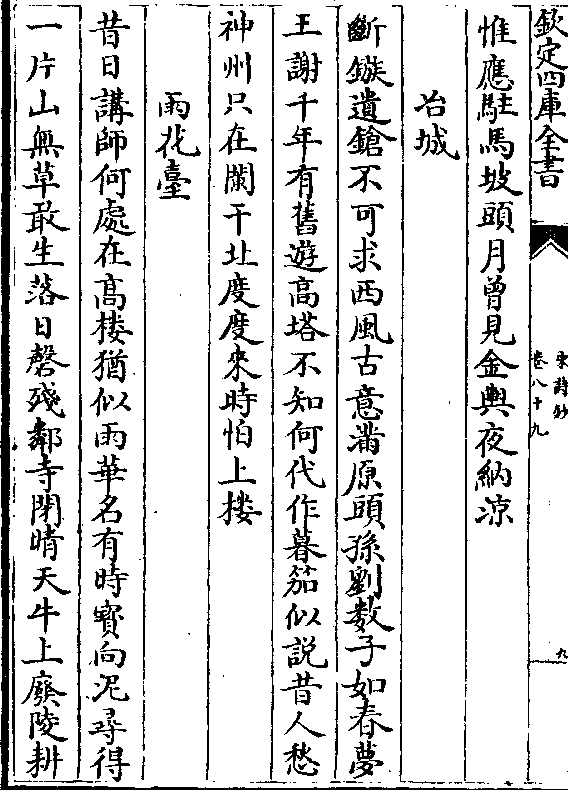 欽定四庫全書
宋詩鈔
卷八十九
九
惟應駐馬坡頭月曾見金輿夜納涼
冶城
斷鏃遺鎗不可求西風古意滿原頭孫劉數子如春夢
王謝千年有舊遊高塔不知何代作暮笳似說昔人愁
神州只在闌干北度度來時怕上樓
雨花臺
昔日講師何處在高樓猶似雨華名有時寳向泥尋得
一片山無草敢生落日磬殘鄰寺閉晴天牛上廢陵耕